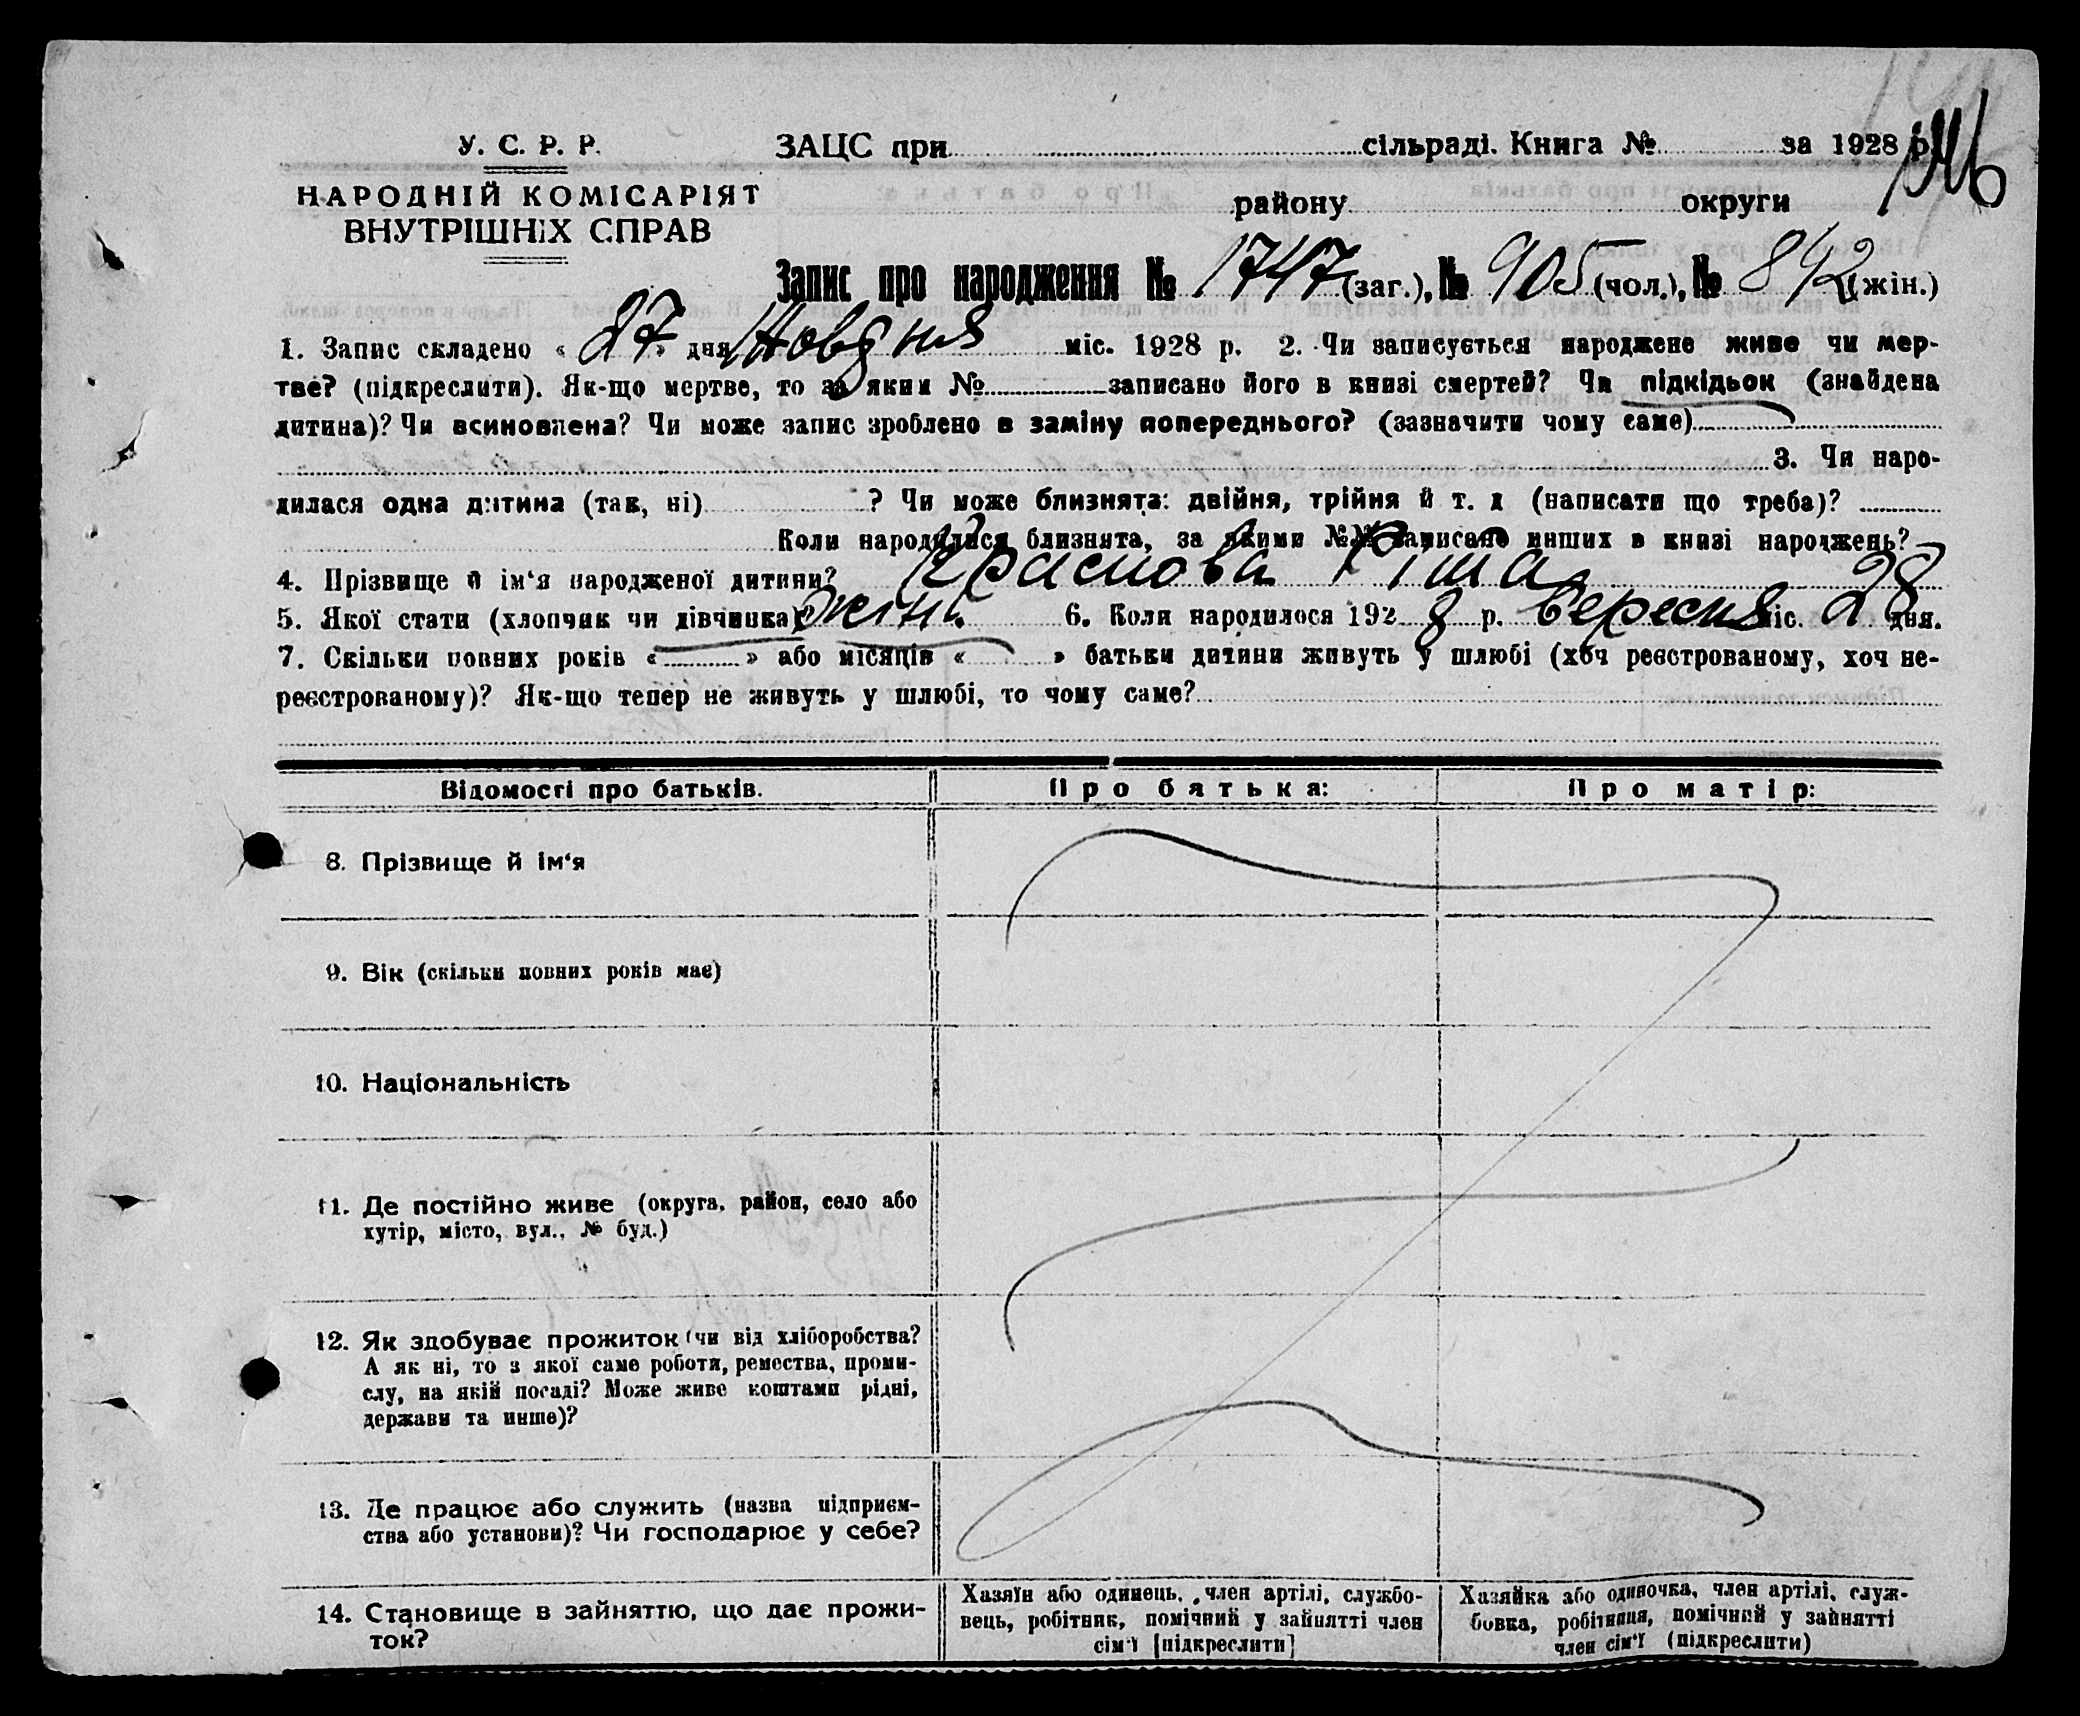 У. С. Р. Р.
НАРОДНІЙ КОМІСАРІЯТ
ВНУТРІШНІХ СПРАВ
ЗАЦС при сільраді. Книга № за 1928 р.
району округи
Запис про народження № 1747 (заг.), № 905 (чол.), № 842 (жін.)
1. Запис складено « 27 » дня Жовдня міс. 1928 р. 2. Чи записується народжене живе чи мер-
тве? (підкреслити). Як-що мертве, то за яким № записано його в книзі смертей? Чи підкідьок (знайдена
дитина)? Чи всиновлена? Чи може запис зроблено в заміну попереднього? (зазначити чому саме)
3. Чи наро-
дилася одна дитина (так, ні) ? Чи може близнята: двійня, трійня й т. д (написати що треба)?
Коли народилися близнята, за якими №№ записано инших в книзі народжень?
4. Прізвище й ім‘я народженої дитини? Краснова Ріма
5. Якої стати (хлопчик чи дівчинка)? жін. 6. Коли народилося 192 8 р. Вересня міс. 28 дня.
7. Скільки повних років « » або місяців « » батьки дитини живуть у шлюбі (хоч реєстрованому, хоч не-
реєстрованому)? Як-що тепер не живуть у шлюбі, то чому саме?
Відомості про батьків. Про батька: Про матір:
8. Прізвище й ім‘я
9. Вік (скільки повних років має)
10. Національність
11. Де постійно живе (округа, район, село або
хутір, місто, вул., № буд.)
12. Як здобуває прожиток (чи від хліборобства?
А як ні, то з якої саме роботи, ремества, проми-
слу, на якій посаді? Може живе коштами рідні,
держави та инше)?
13. Де працює або служить (назва підприєм-
ства або установи)? Чи господарює у себе?
14. Становище в зайняттю, що дає прожи-
ток?
Хазяїн або одинець, член артілі, службо-
вець, робітник, помічний у зайнятті член
сім‘ї [підкреслити]
Хазяйка або одиночка, член артілі, служ-
бовка, робітниця, помічний у зайнятті
член сім‘ї (підкреслити)